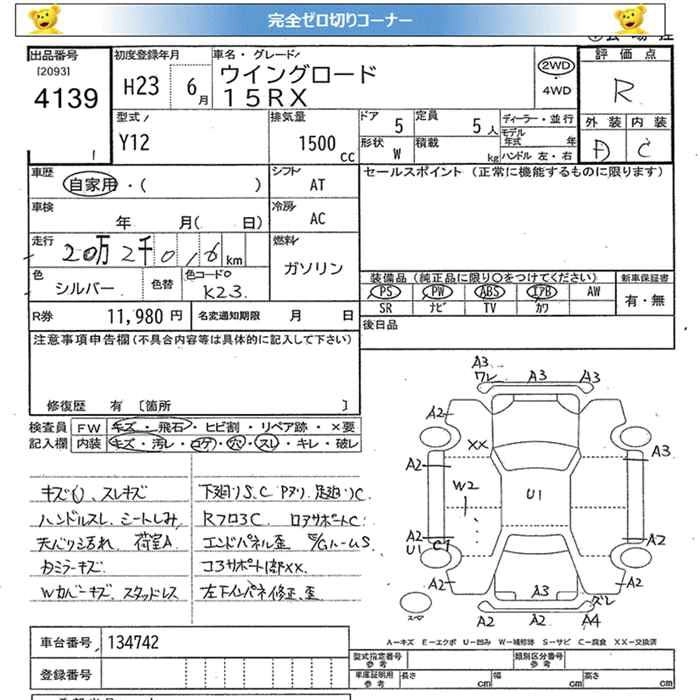 完全ゼロ切りコーナー
出品番号
[2093]
4139
初度登録年月
H23 6月
車名・グレード
ウイングロード
15RX
2WD
・
4WD
評価点
R
外装 内装
D C
型式
Y12
排気量
1500
CC
ドア 5
定員 5人
形状 W
積載 kg
ディーラー・並行
モデル年式 年
ハンドル 左・右
車歴
自家用・( )
シフト
AT
セールスポイント (正常に機能するものに限ります)
車検
年 月( 日)
冷房
AC
走行
20万2千016km
燃料
ガソリン
色
シルバー
色替
色コードO
K23
装備品 (純正品に限り○をつけてください)
PS PW ABS エアB AW
SR ナビ TV カワ
新車保証書
有・無
R券 11,980 円
名変通知期限 月 日
後日品
注意事項申告欄(不具合内容等は具体的に記入して下さい)
修復歴 有 〔箇所 〕
検査員
記入欄
FW キズ・飛石・ヒビ割・リペア跡・×要
内装 キズ・汚レ・コゲ・穴・スレ・キレ・破レ
キズ()、スレキズ
ハンドルスレ、シートしみ
天バリ汚れ、荷室A
カミラーキズ
Wカバーキズ、スタッドレス
下廻りS、C Pヌリ、足廻りC
Rフロ3C ロアサポートC
エンドパネル歪 E/GルームS
コアサポート1部XX
左下インパネ修正、歪
A3
ワレ
A3
A3
A2
A2
XX
A3
A2
W2
U1
A2
U1
C1
A2
A2
A2
A3
ズレ
スペア
A2
A2
A4
A-キズ E-エクボ U-凹み W-補修跡 S-サビ C-腐食 XX-交換済
車台番号 134742
登録番号
型式指定番号
参考
類別区分番号
参考
車庫証明用
参考
長さ cm
幅 cm
高さ cm